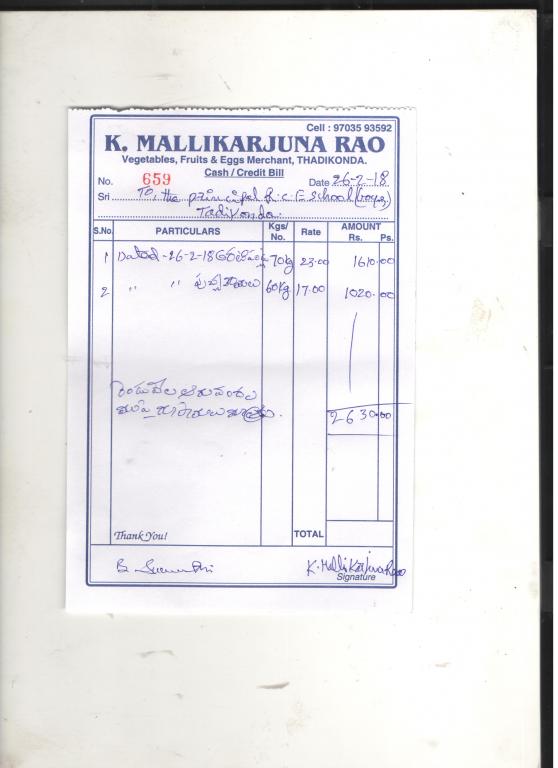 Cell : 97035 93592
K. MALLIKARJUNA RAO
Vegetables, Fruits & Eggs Merchant, THADIKONDA.
Cash / Credit Bill
No. 659 Date 26-2-18
Sri To, the principal A.C E School (Boys)
Tadikonda.
S.No. PARTICULARS Kgs/No. Rate AMOUNT Rs. Ps.
1 Dated-26-2-18 అరటిపండ్లు 70kg 23.00 1610.00
2 " " పుచ్చకాయలు 60kg 17.00 1020.00
రెండువేల ఆరువందల
ముప్పై రూపాయలు మాత్రమే. 2630.00
Thank You! TOTAL
K. Mallikarjuna Rao
Signature